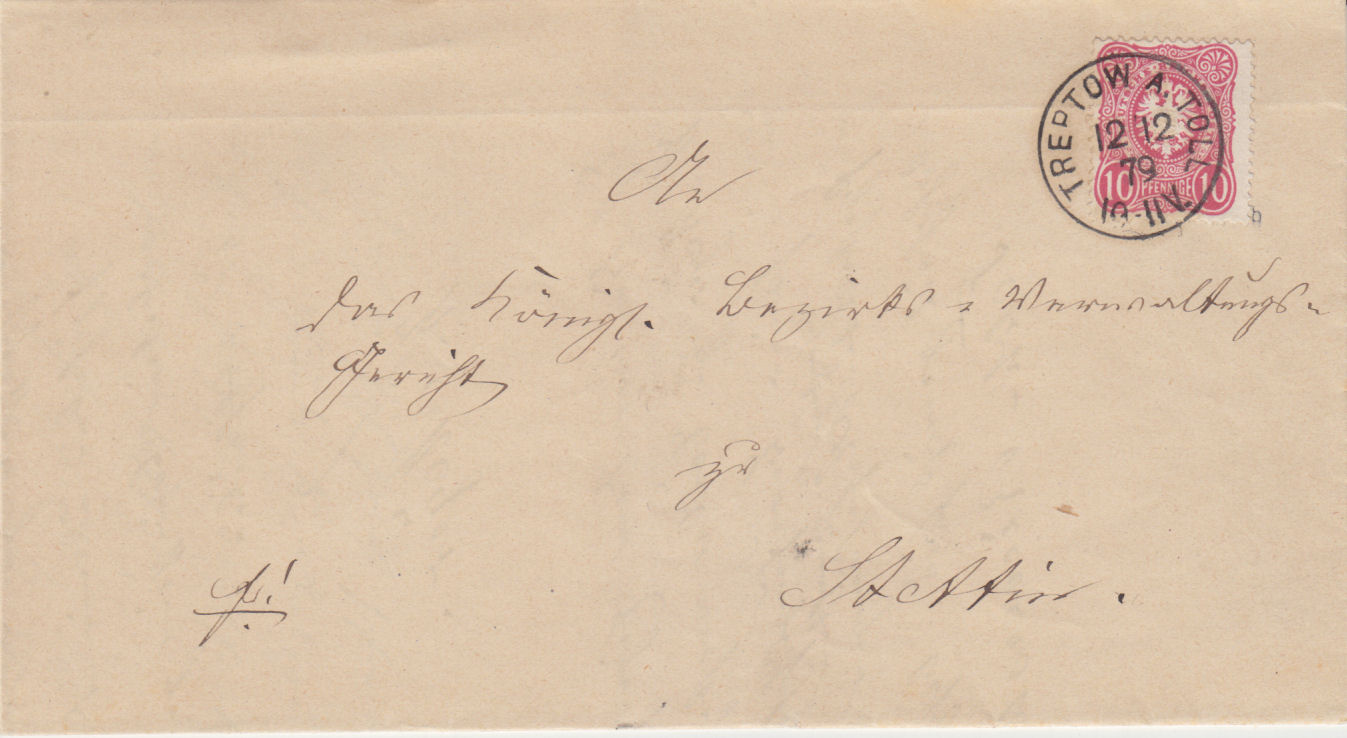 TREPTOW A. TOLL
12 12
79
10-11 V.
10 PFENNIGE 10
An
das Königl. Bezirks-Verwaltungs-
Gericht
zu
Stettin.